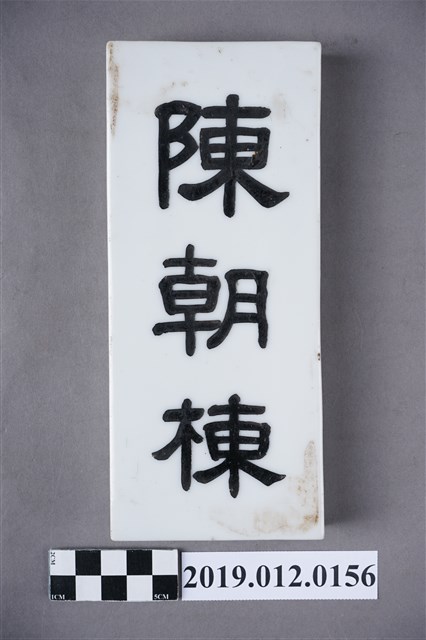 陳朝棟
2CM
1CM 5CM
2019.012.0156